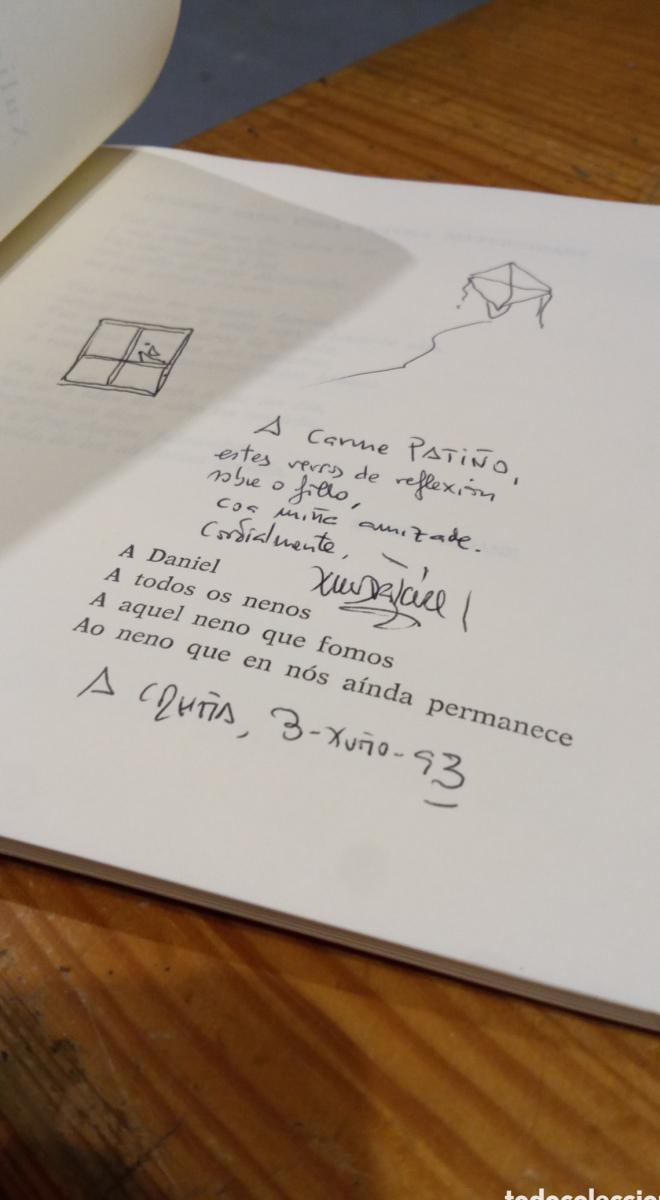 A Carme PATIÑO,
estes versos de reflexión
sobre o fillo,
coa miña amizade.
Cordialmente,
A Daniel
A todos os nenos
A aquel neno que fomos
Ao neno que en nós aínda permanece
A CRUÑA, 3-XUÑO-93